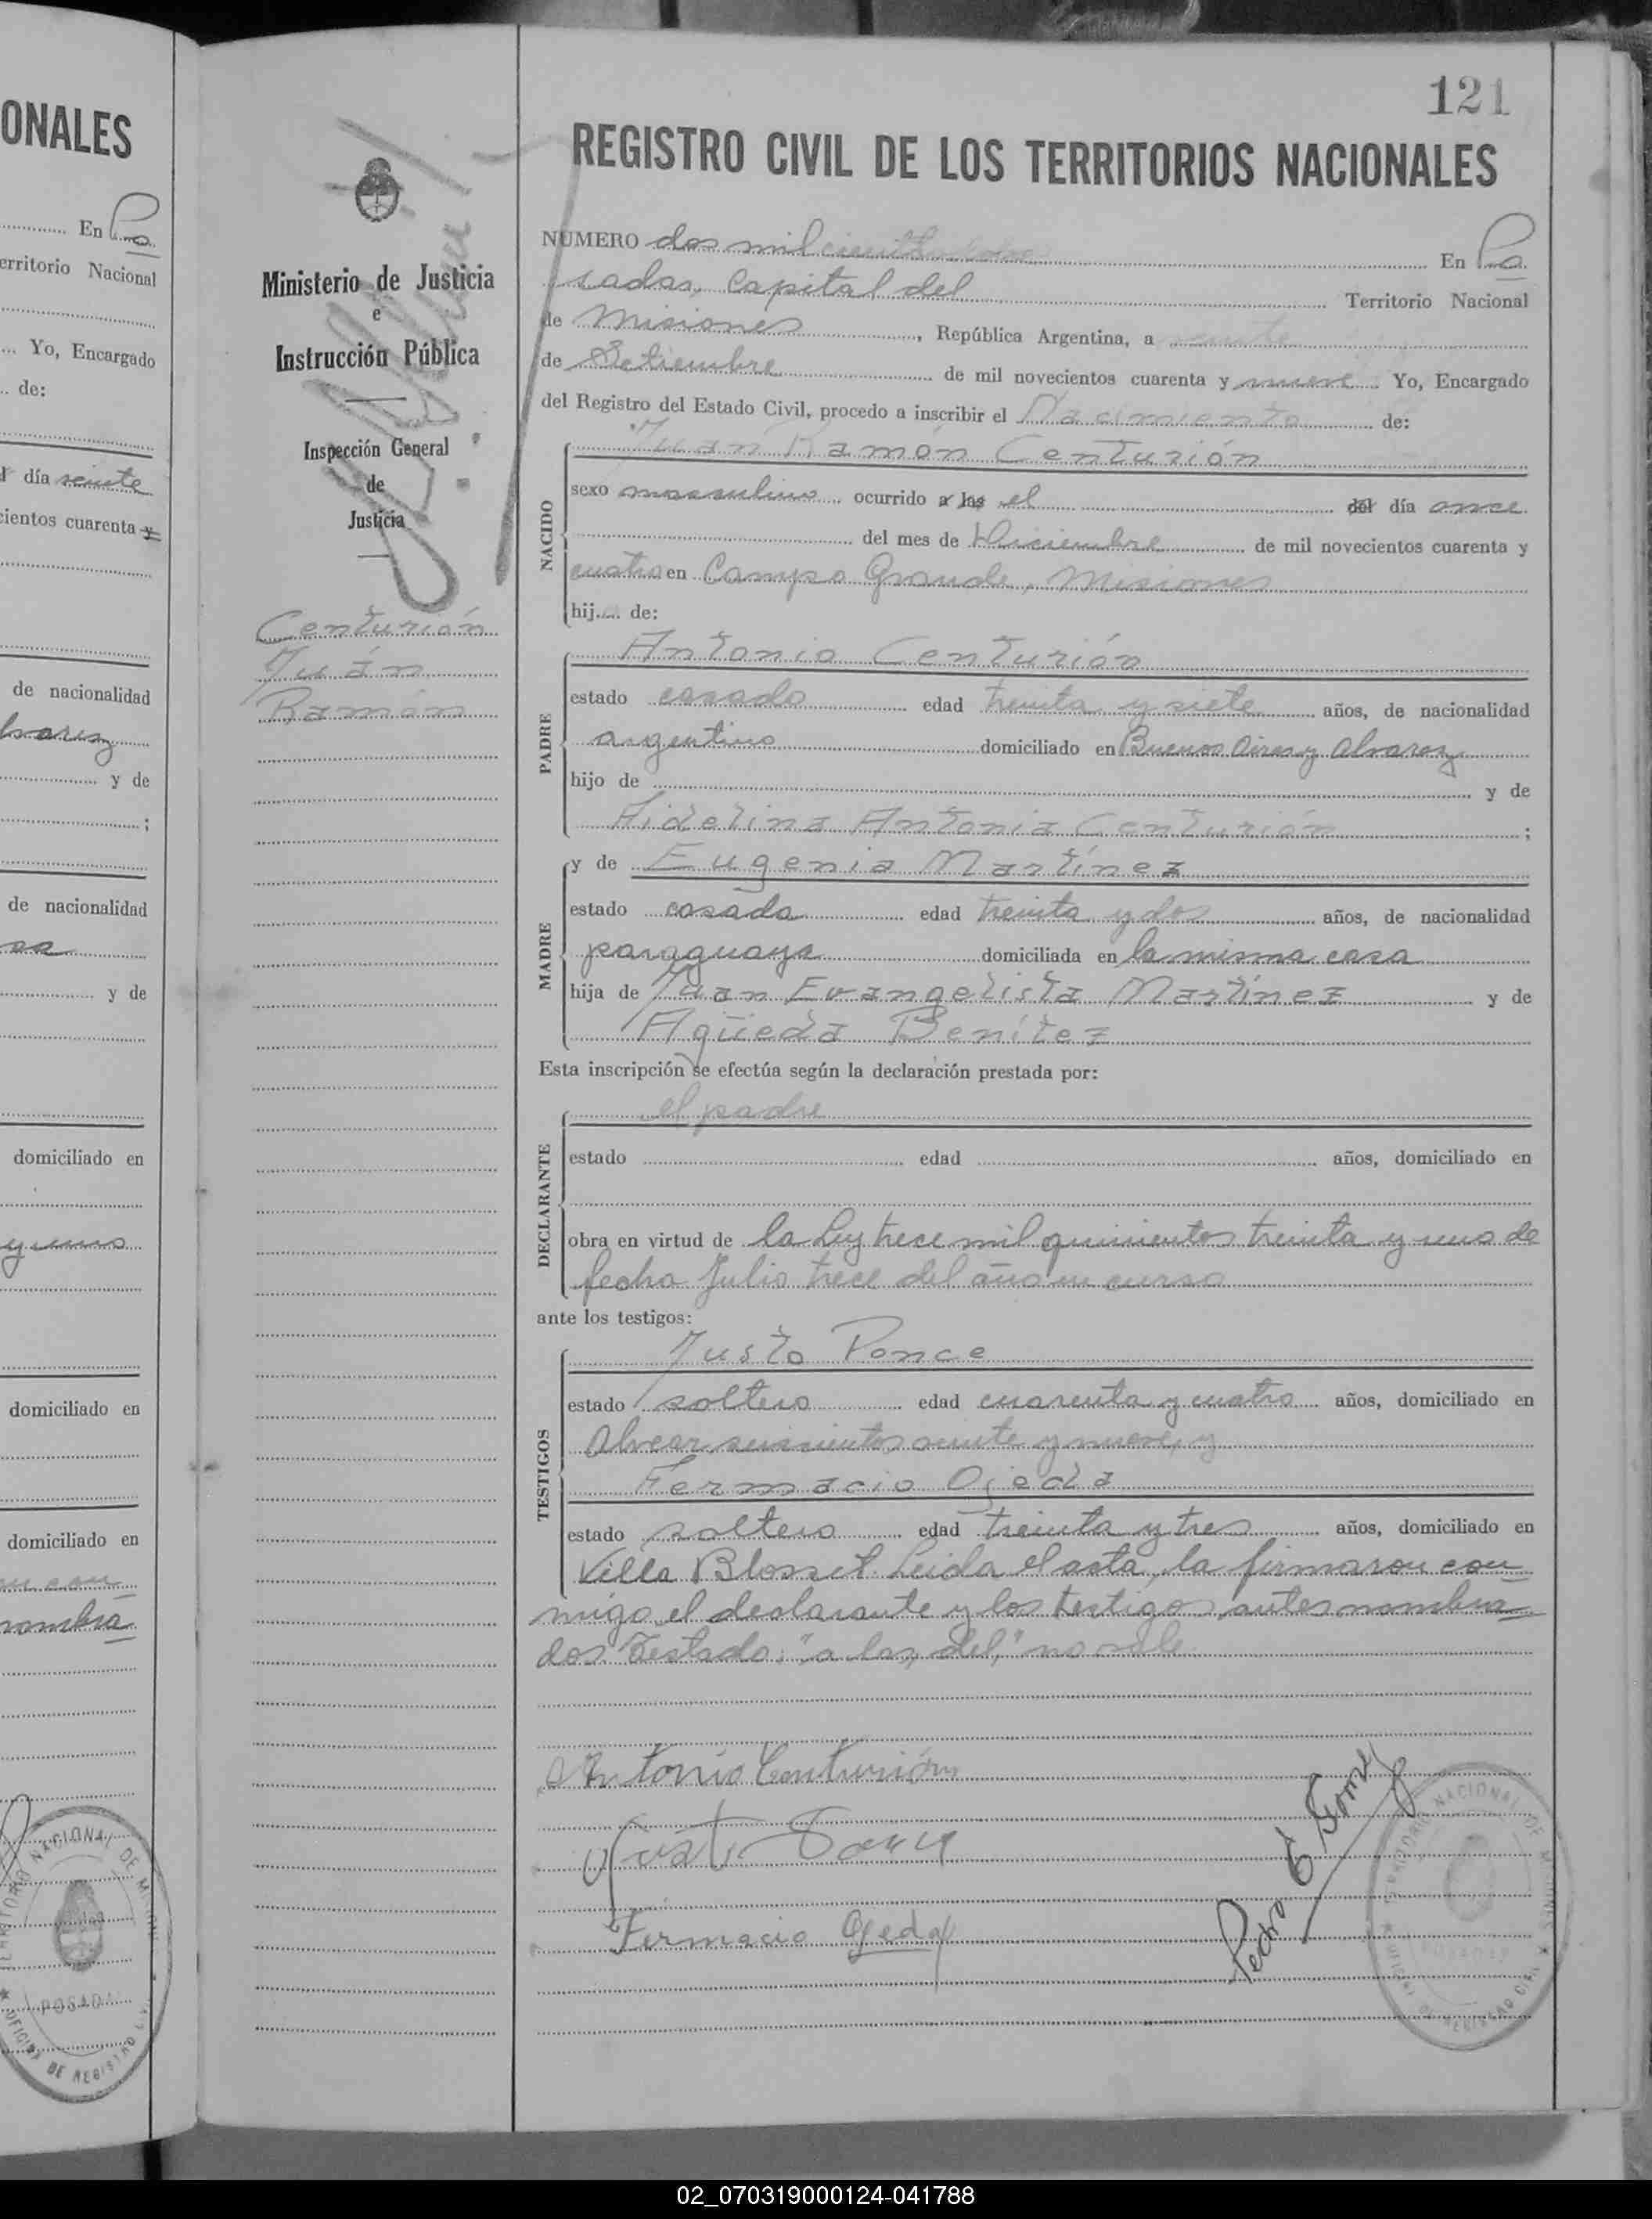 ONALES
En Po
erritorio Nacional
Yo, Encargado
de:
día veinte
cientos cuarenta y
de nacionalidad
lvarez
y de
;
de nacionalidad
sa
y de
domiciliado en
y uno
domiciliado en
domiciliado en
con
nombra
TERRITORIO NACIONAL DE MISIONES
POSADAS
OFICINA DE REGISTRO CIVIL
Ministerio de Justicia
e
Instrucción Pública
Inspección General
de
Justicia
Centurión
Juán
Ramón
121
REGISTRO CIVIL DE LOS TERRITORIOS NACIONALES
NUMERO dos mil ciento En Po
sadas, Capital del Territorio Nacional
de Misiones, República Argentina, a veinte
de Setiembre de mil novecientos cuarenta y nueve Yo, Encargado
del Registro del Estado Civil, procedo a inscribir el Nacimiento de:
Juan Ramón Centurión
NACIDO
sexo masculino ocurrido a las el del día once
del mes de Diciembre de mil novecientos cuarenta y
cuatro en Campo Grande, Misiones
hijo de:
Antonio Centurión
PADRE
estado casado edad treinta y siete años, de nacionalidad
argentino domiciliado en Buenos Aires y Alvarez
hijo de y de
Aidelina Antonia Centurión;
MADRE
y de Eugenia Martínez
estado casada edad treinta y dos años, de nacionalidad
paraguaya domiciliada en la misma casa
hija de Juan Evangelista Martínez y de
Agüeda Benítez
Esta inscripción se efectúa según la declaración prestada por:
el padre
DECLARANTE
estado edad años, domiciliado en
obra en virtud de la Ley trece mil quinientos treinta y uno de
fecha Julio trece del año en curso
ante los testigos:
Justo Ponce
TESTIGOS
estado soltero edad cuarenta y cuatro años, domiciliado en
Alvear seiscientos veinte y nueve, y
Fermacio Ojeda
estado soltero edad treinta y tres años, domiciliado en
Villa Blosset. Leida el acta, la firmaron con
migo el declarante y los testigos antes nombra
dos. Testado: "a las, del," no vale
Antonio Centurión
Justo Ponce
Fermacio Ojeda
Pedro E Gomez
TERRITORIO NACIONAL DE MISIONES
POSADAS
OFICINA DE REGISTRO CIVIL
02_070319000124-041788